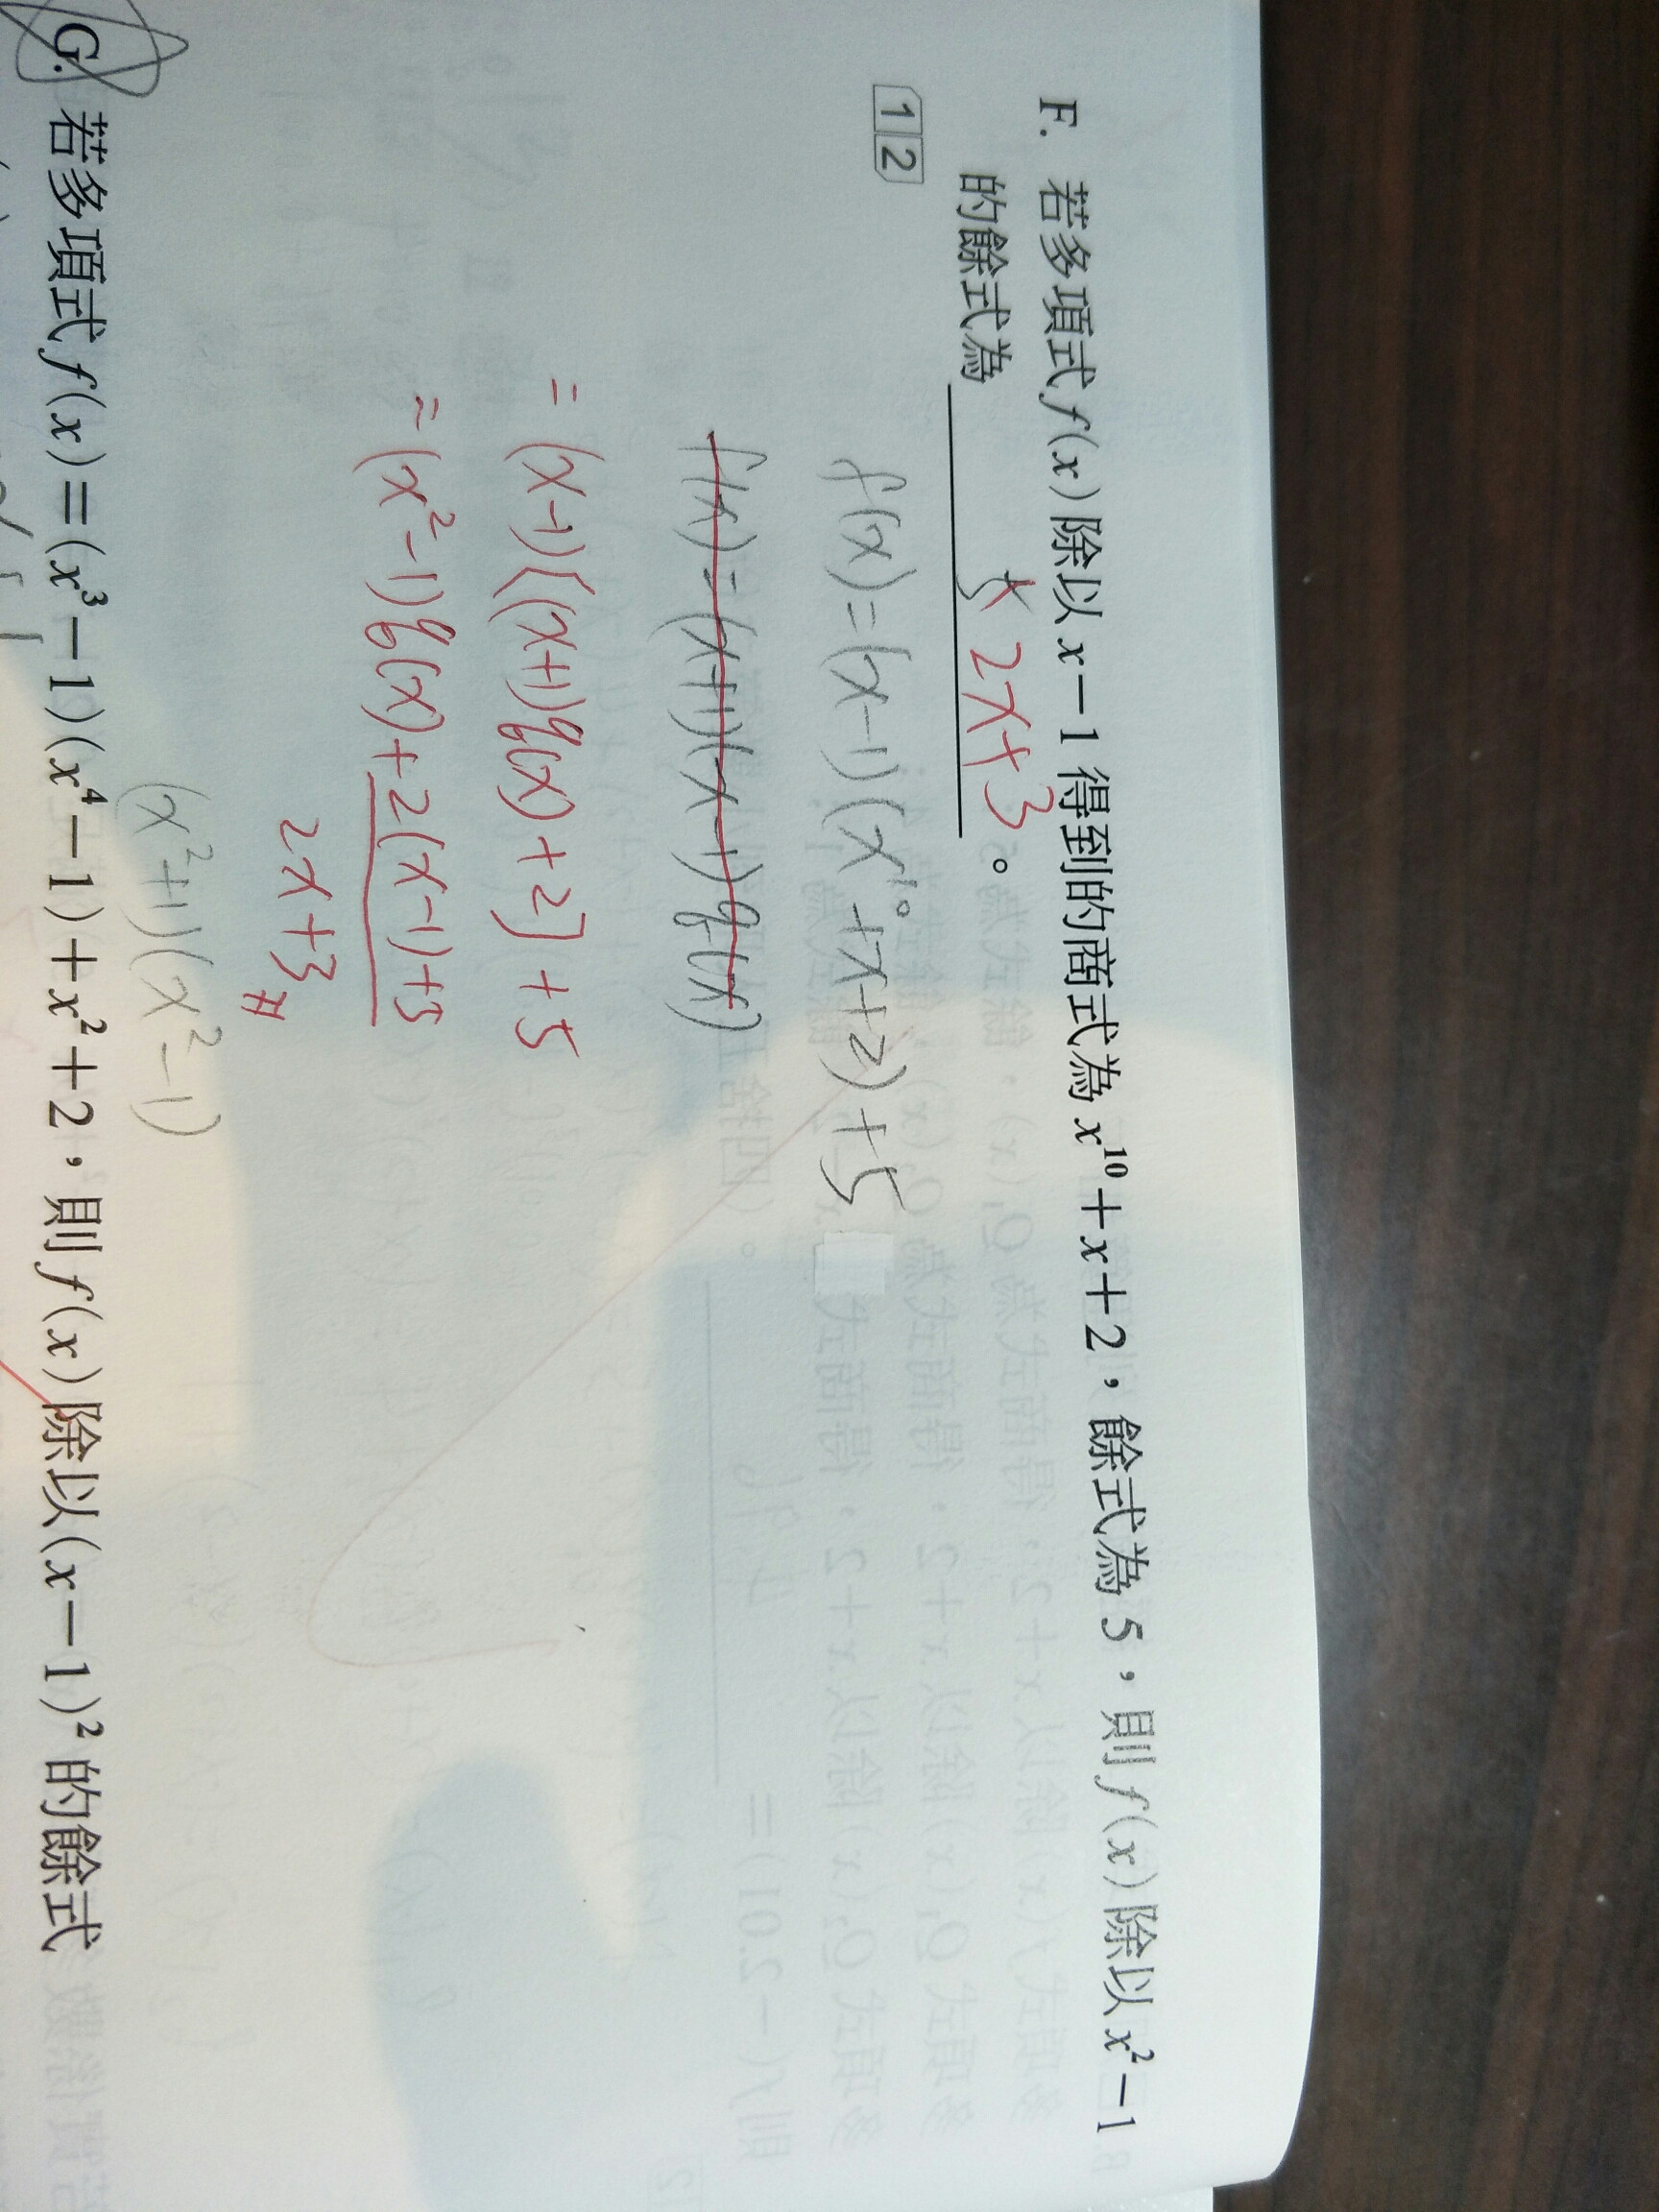 F. 若多項式 f(x) 除以 x－1 得到的商式為 x¹⁰＋x＋2，餘式為 5，則 f(x) 除以 x²－1
的餘式為 2x+3 。
1 2
f(x)=(x-1)(x¹⁰+x+2)+5
f(x)=(x+1)(x-1)q(x)
=(x-1)[(x+1)q(x)+2]+5
=(x²-1)q(x)+2(x-1)+5
2x+3
(x²+1)(x²-1)
G. 若多項式 f(x)＝(x³－1)(x⁴－1)＋x²＋2，則 f(x) 除以 (x－1)² 的餘式